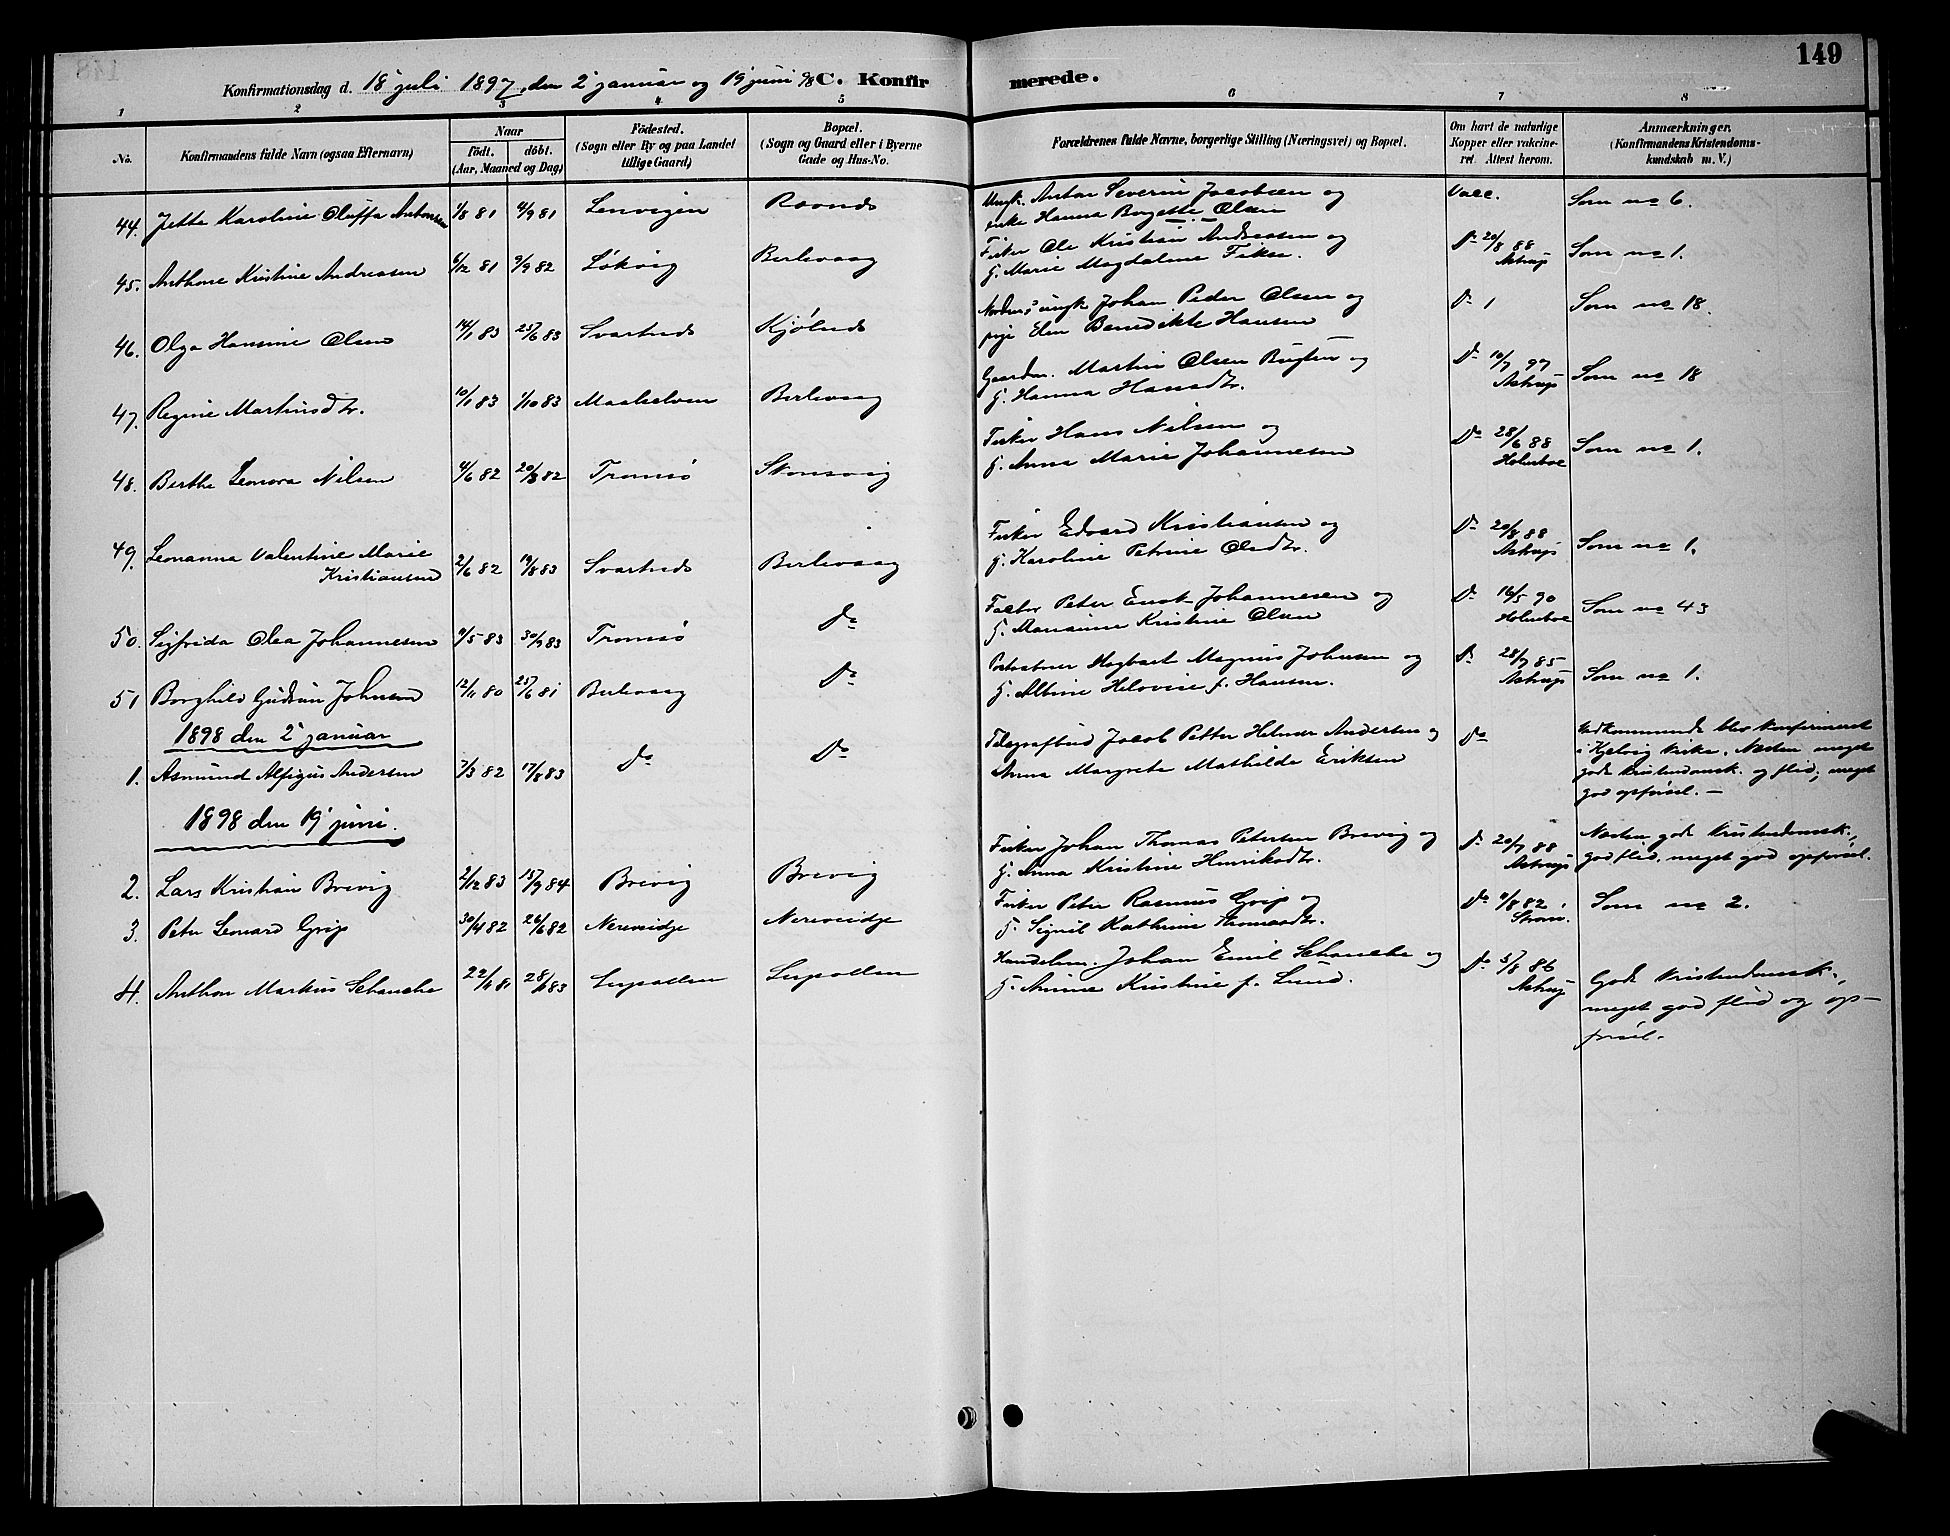 149
Konfirmationsdag d. 18 juli 1897, den 2 januar og 19 juni 98 C. Konfirmerede.
1 2 3 4 5 6 7 8
No. Konfirmandens fulde Navn (ogsaa Efternavn) Naar födt. döbt. (Aar, Maaned og Dag) Födested. (Sogn eller By og paa Landet tillige Gaard) Bopæl. (Sogn og Gaard eller i Byerne Gade og Hus-No. Forældrenes fulde Navne, borgerlige Stilling (Næringsvei) og Bopæl. Om havt de naturlige Kopper eller vakcineret. Attest herom. Anmærkninger. (Konfirmandens Kristendomskundskab m. V.)
44. Jette Karoline Oluffa Antonsen 1/8 81 4/9 81 Lenvigen Ungk. Anton Severin Jacobsen og Vacc. Som no 6.
enke Hanna Borgette Olsen
45. Anthone Kristine Andreasen 6/12 81 9/9 82 Løkvig Berlevaag Fisker Ole Kristian Andreasen og Do 20/8 88 Astrup Som no 1.
G. Marie Magdalene Fisker.
46. Olga Hansine Olsen 14/1 83 25/6 83 Svartnes Kjølnes ungk. Johan Peder Olsen og Do 1 Som no 18.
pige Elen Benedikte Hansen
47. Regine Martinsdtr. 10/1 83 1/10 83 Maalselven Berlevaag Gaardm. Martin Olsen og Do 10/7 97 Astrup Som no 18
G. Hanna Hansdtr.
48. Berthe Leonora Nilsen 4/6 82 20/8 82 Tromsø Skonsvig Fisker Hans Nilsen og Do 28/6 88 Holmboe Som no 1.
G. Anna Marie Johannesen
49. Leonanna Valentine Marie Kristiansen 2/6 82 19/8 83 Svartnes Berlevaag Fisker Edvard Kristiansen og Do 20/8 88 Astrup Som no 1.
G. Karoline Petrine Olsdtr.
50. Sigfrida Olea Johannesen 4/5 83 30/9 83 Tromsø Do Factor Peter Enok Johannesen og Do 16/5 90 Holmboe Som no 43
G. Marianne Kristine Olsen
51 Borghild Gudrun Johnsen 12/11 80 25/6 81 Berlevaag Do Hagbart Magnus Johnsen og Do 28/7 85 Astrup Som no 1.
G. Albine Helovise f. Hansen.
1898 den 2 januar
1. Asmund Alfigus Andersen 7/3 82 17/8 83 Do Do Telegrafbud Jacob Petter Helmer Andersen og Do Vedkommende blev konfirmeret
Anna Margrete Mathilde Eriksen i Kjelvig kirke. Næsten meget
gode kristendomsk. og flid, meget
god opførsel. —
1898 den 19 juni.
2. Lars Kristian Brevig 2/12 83 15/9 84 Brevig Brevig Fisker Johan Thomas Petersen Brevig og Do 20/7 88 Astrup Næsten gode kristendomsk.,
G. Anna Kristine Henriksdtr. god flid, meget god opførsel.
3. Peter Leonard Grip 30/4 82 26/6 82 Nereidje Nereidje Fisker Peter Rasmus Grip og Do 4/8 82 Strøm. Som no 2.
G. Sigvil Kathrine
4. Anthon Markus Schanche 22/11 81 28/1 83 Leirpollen Leirpollen Handelsm. Johan Emil Schanche og Do 5/8 86 Astrup Gode kristendomsk.,
G. Anine Kristine f. Lund. meget god flid og op-
førsel.